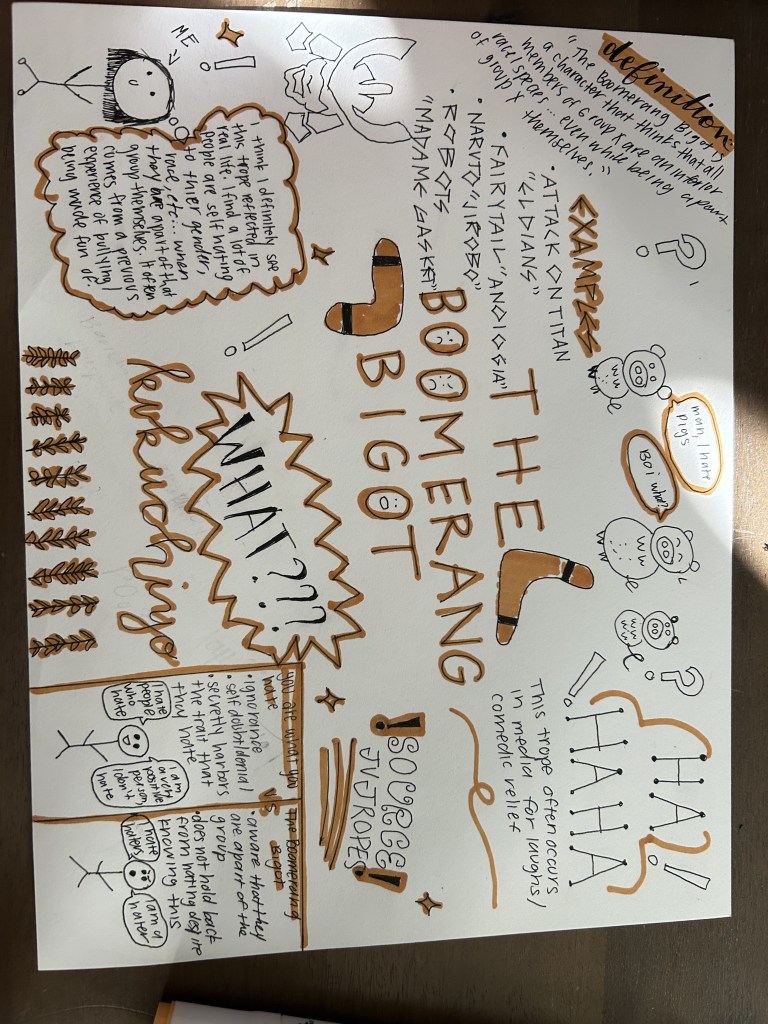 definition:
"The Boomerang Bigot is
a character that thinks that all
members of Group X are an inferior
race/species... even while being a part
of group X themselves."
EXAMPLES
• ATTACK ON TITAN
"ELDIANS"
• FAIRYTAIL "ANOLOGIA"
• NARUTO "JIROBO"
• ROBOTS
"MADAME GASKET"
ME
I think I definitely see
this trope reflected in
real life. I find a lot of
people are self hating
to thier gender,
race, etc... when
they are apart of that
group themselves. It often
comes from a previous
experience of bullying/
being made fun of.
man, I hate
pigs
Boi what?
THE
BOOMERANG
BIGOT
WHAT???
kukuchiyo
HA
HAHA
This trope often occurs
in media for laughs/
comedic relief
!SOURCE!
TVTROPES
you are what you
hate
• ignorance
• self doubt/denial
• secretly harbors
the trait that
they hate
I hate
people
who
hate
I am
a very
positive
person,
I don't
hate
VS
The Boomerang
Bigot
• aware that they
are apart of the
group
• does not hold back
from hating despite
knowing this
I hate
haters
I am a
hater